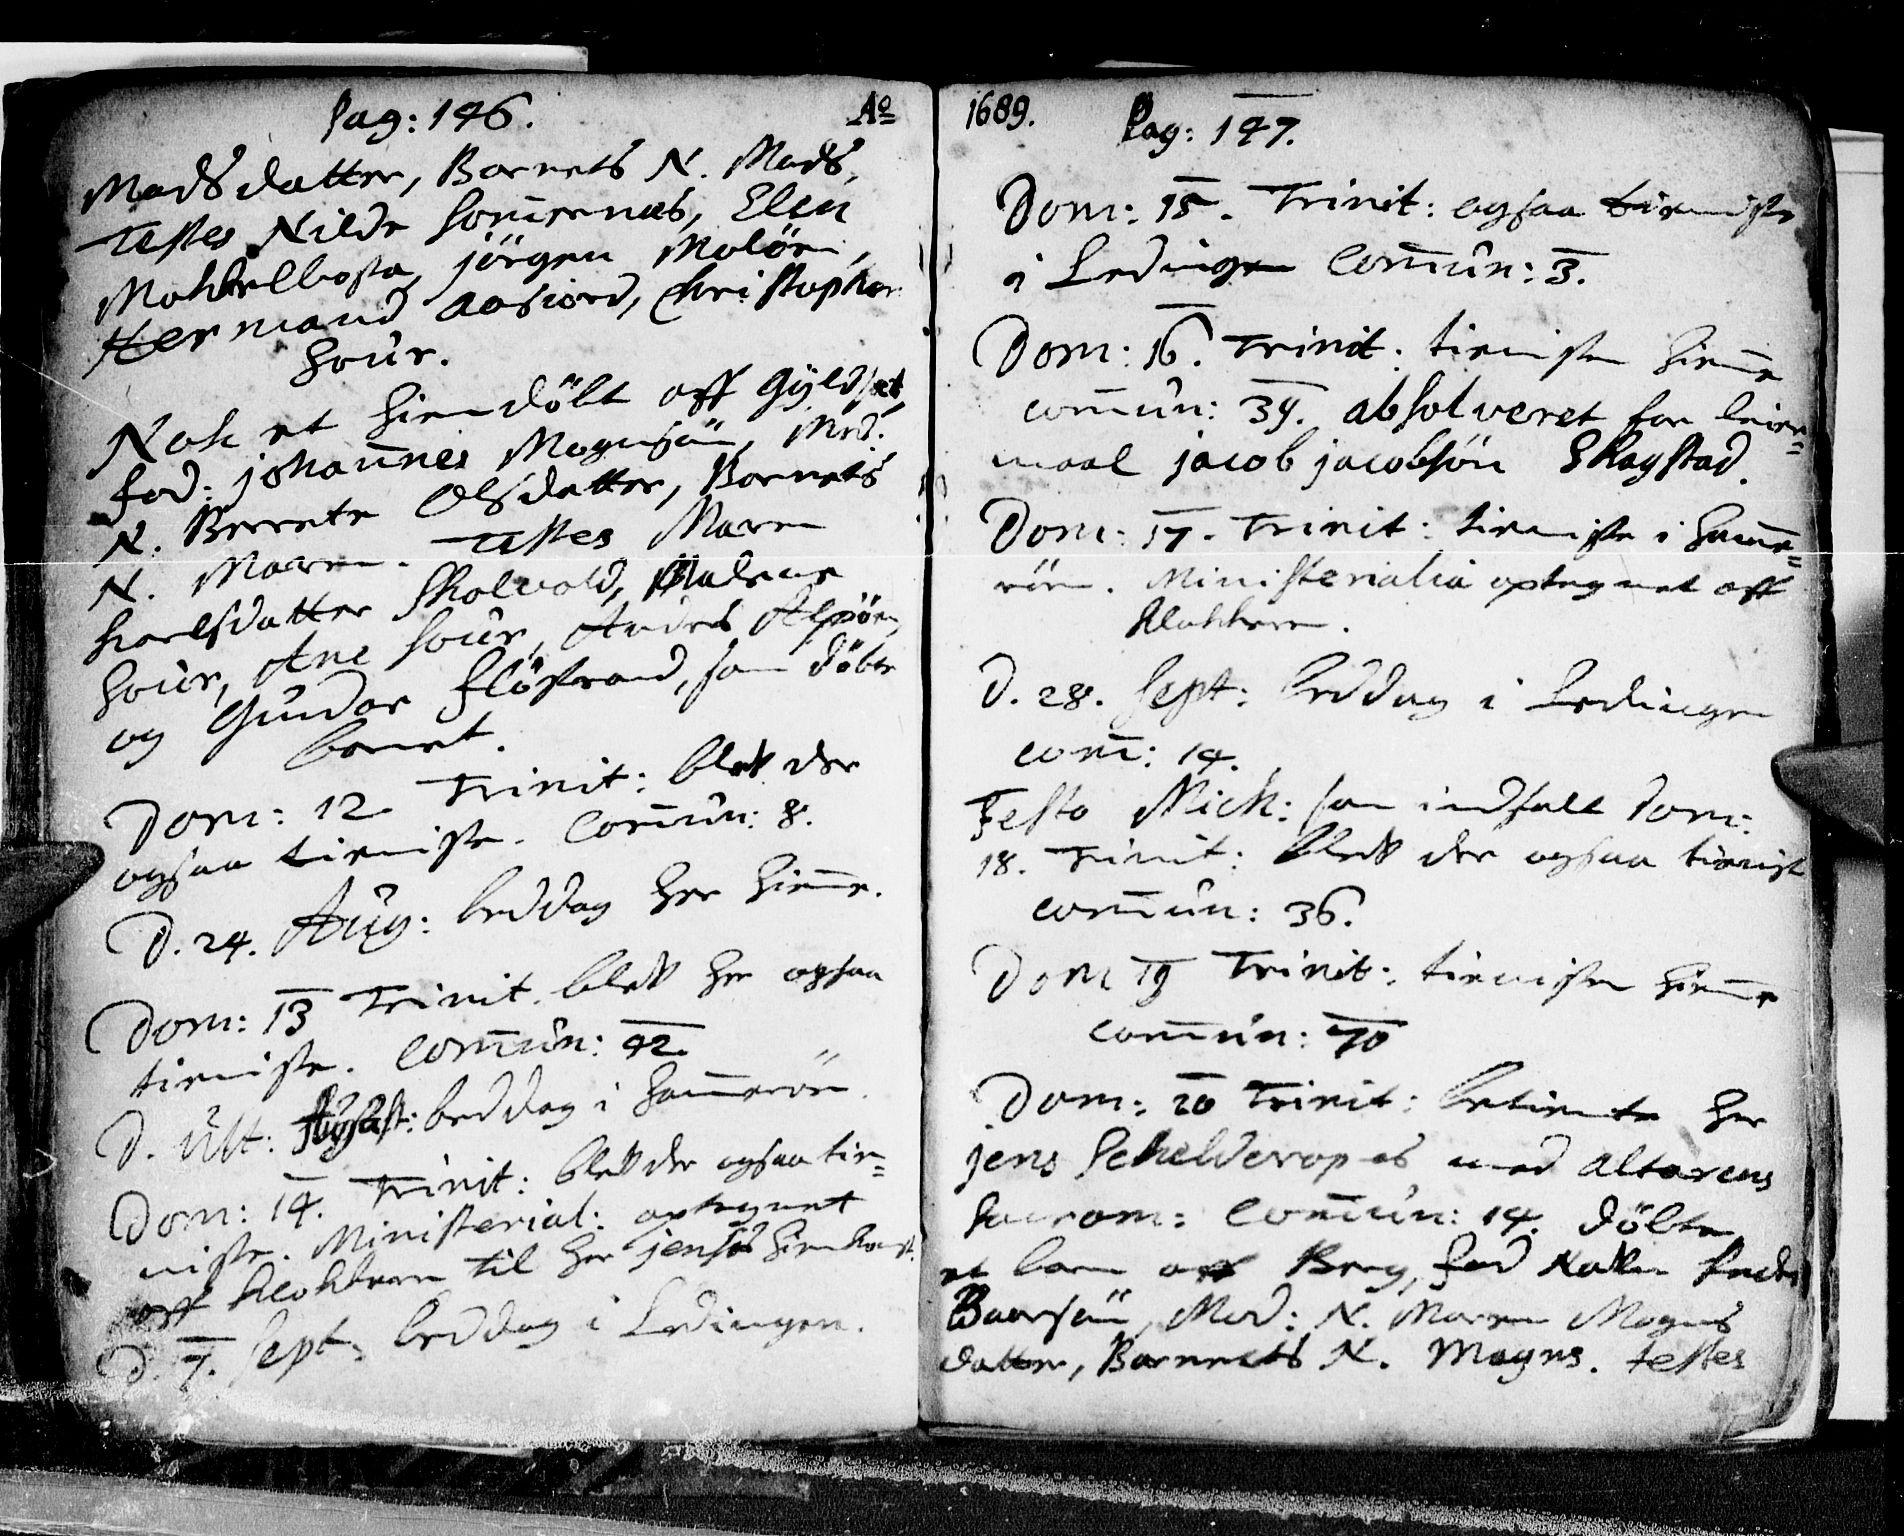 Pag: 146. Ao
Mads datter, Barnets N. Mads,
Testes Nilds Som̄ernæs, Elen
Mohkelbosta, jörgen Molöen,
Hermand Aasiord, Christopher
hour.
Noh et hiemdöbt aff Gyldset
fad: johan̄es Mognsön, Mod:
N. Berrete Olsdatter, Barnets
N. Maren. Testes Maren
Karlsdatter Skolvold, Malene
hour, Ane hour, Anders
og Gundar Flöstrand, som döbte
barnet.
Dom: 12 Trinit: bleff der
ogsaa tieniste. Com̄un: 8.
D. 24. Aug: beddag her hiem̄e.
Dom: 13 Trinit. bleff her ogsaa
tieniste. Com̄un: 42.
D. Ult: August: beddag i Ham̄eröen.
Dom: 14. Trinit: bleff der ogsaa tie=
niste. Ministerial: optegnet
aff Klokkeren til her jenses hiemkomst.
D. 7. Sept: beddag i Lødingen.
1689. Pag: 147.
Dom: 15. Trinit: ogsaa tieniste
i Lødingen Com̄un: 3.
Dom: 16. Trinit: tienisten hiem̄e
com̄un: 39. absolveret for leier=
maal jacob jacobsön Skagstad.
Dom: 17. Trinit: tieniste i Ham̄e=
röen. Ministerialia optegnet aff
Klokkeren.
D. 28. Sept: beddag i Lødingen
com̄: 14.
Festo Mich: som indfalt Dom:
18. Trinit: bleff der ogsaa tienist
com̄un: 36.
Dom 19 Trinit: tienisten hiem̄e
com̄un: 70
Dom: 20 Trinit: betiente her
jens Schelderop os med altarens
Sacram: Com̄un: 14. döbte
et barn aff Berg, fad
Baarsön, Mod: N. Maren Mogns
datter, Barnets N. Mogns. testes